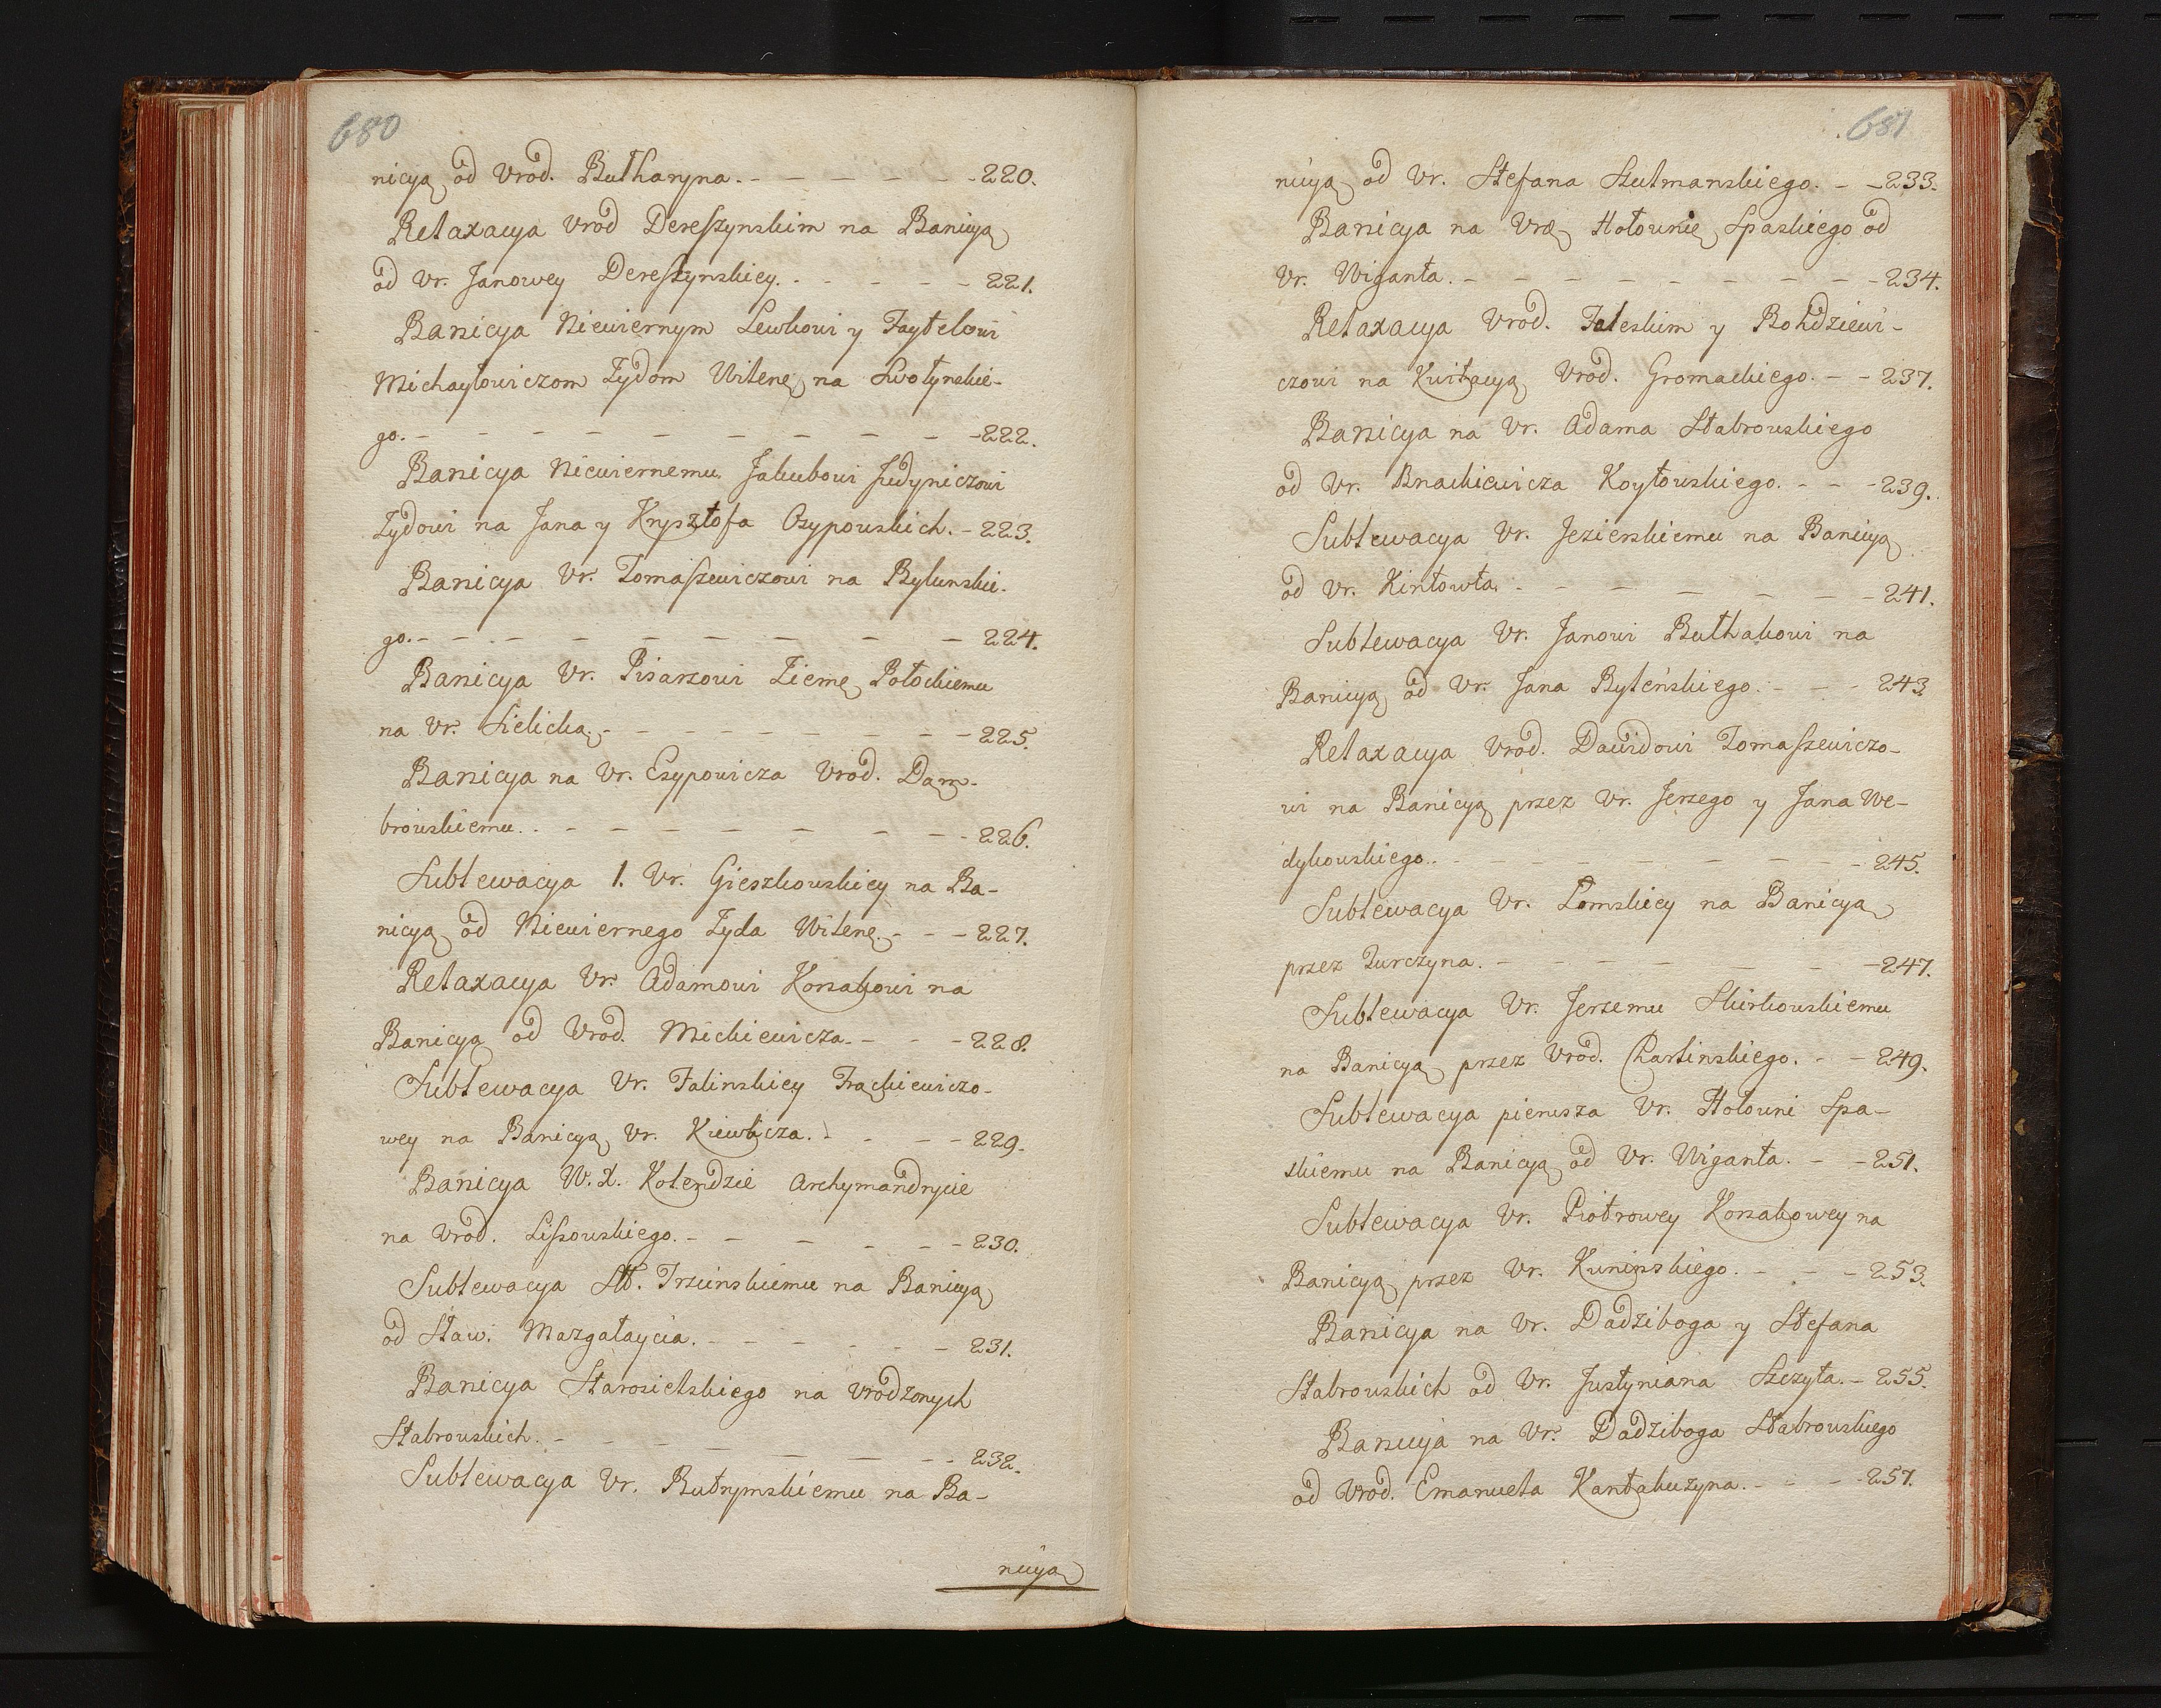 680
nicyą od Vrod. Bułharyna. - - - - - 220.
Relaxacya Vrod Dereszynskim na Banicyą
od Vr. Janowey Dereszynskiey. - - - - - 221.
Banicya Niewiernym Lewkowi y Faytelowi
Michayłowiczom Żydom Wileńę na Swołynskie-
go. - - - - - - - - - 222.
Banicya Niewiernemu Jakubowi Judyniczowi
Żydowi na Jana y Krysztofa Osypowskich. - 223.
Banicya Vr. Tomaszewiczowi na Bykunskie-
go. - - - - - - - - - 224.
Banicya Vr. Pisarzowi Ziemę Połockiemu
na Vr. Sielicką. - - - - - - - - 225.
Banicya na Vr. Esypowicza Vrod. Dam-
browskiemu. - - - - - - - - 226.
Sublewacya 1. Vr. Gieszkowskiey na Ba-
nicyą od Niewiernego Żyda Wilenę. - - - 227.
Relaxacya Vr. Adamowi Korsakowi na
Banicyą od Vrod. Mickiewicza. - - - 228.
Sublewacya Vr. Falinskiey Frąckiewiczo-
wey na Banicyą Vr. Kiewlicza. - - - - 229.
Banicya W. X. Kolendzie Archymandrycie
na Vrod. Lissowskiego. - - - - - - 230.
Sublewacya Sł. Trzcinskiemu na Banicyą
od Sław. Mazgałaycia. - - - - - - 231.
Banicya Starosielskiego na Vrodzonych
Stabrowskich. - - - - - - - - 232.
Sublewacya Vr. Butrymskiemu na Ba-
nicyą
681
nicyą od Vr. Stefana Szutmanskiego. - - 233.
Banicya na Vrę Hołownię Spaskiego od
Vr. Wiganta. - - - - - - - - 234.
Relaxacya Vrod. Taleskim y Bohdziewi-
czowi na Kwitacyą Vrod. Gromackiego. - - 237.
Banicya na Vr. Adama Stabrowskiego
od Vr. Bnackiewicza Koytowskiego. - - - 239.
Sublewacya Vr. Jezierskiemu na Banicyą
od Vr. Kintowta. - - - - - - - 241.
Sublewacya Vr. Janowi Bułhakowi na
Banicyą od Vr. Jana Byłeńskiego. - - - 243
Relaxacya Vrod. Dawidowi Tomaszewiczo-
wi na Banicyą przez Vr. Jerzego y Jana We-
dykowskiego. - - - - - - - - 245.
Sublewacya Vr. Łomskiey na Banicyą
przez Turczyna. - - - - - - - 247.
Sublewacya Vr. Jerzemu Skirkowskiemu
na Banicyą przez Vrod. Chaslinskiego. - - 249.
Sublewacya pierwsza Vr. Hołowni Spa-
skiemu na Banicyą od Vr. Wiganta. - - 251.
Sublewacya Vr. Piotrowey Korsakowey na
Banicyą przez Vr. Kuninskiego. - - - 253.
Banicya na Vr. Dadziboga y Stefana
Stabrowskich od Vr. Justyniana Szczyta. - 255.
Banicya na Vr. Dadziboga Stabrowskiego
od Vrod. Emanuela Kantakuzyna. - - - 257.